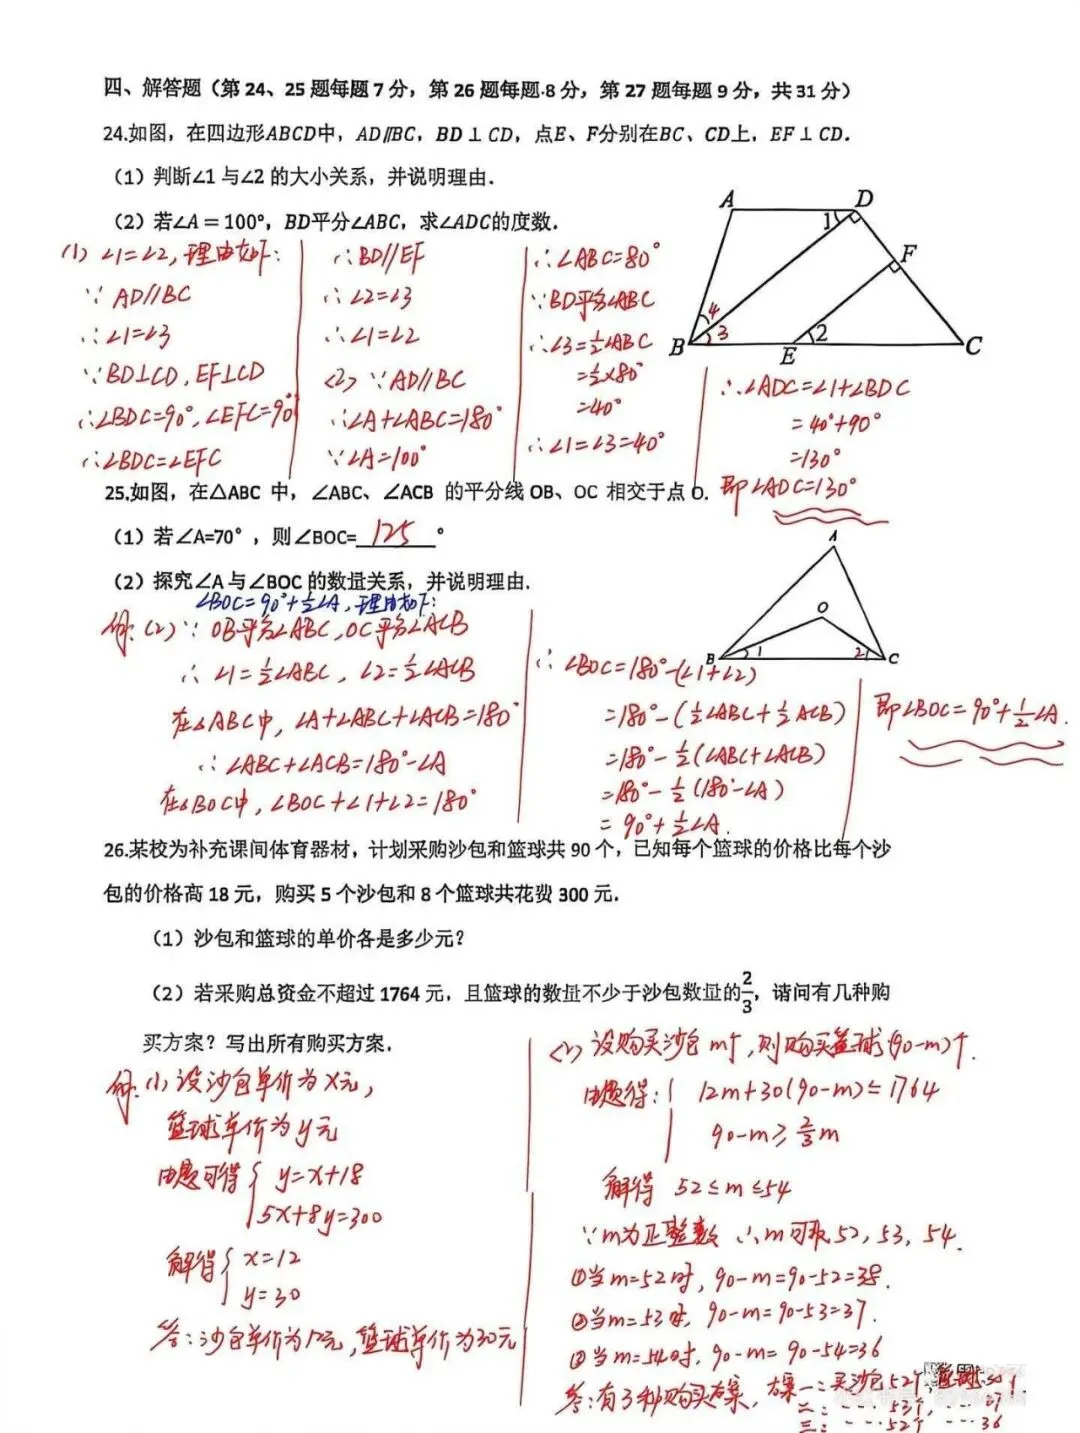 四、解答题（第 24、25 题每题 7 分，第 26 题每题.8 分，第 27 题每题 9 分，共 31 分）
24.如图，在四边形ABCD中，AD∥BC，BD⊥CD，点E、F分别在BC、CD上，EF⊥CD.
（1）判断∠1与∠2的大小关系，并说明理由.
（2）若∠A=100°，BD平分∠ABC，求∠ADC的度数.
A
D
1
F
4
3
2
B
E
C
(1) ∠1=∠2,理由如下:
∵ AD//BC
∴∠1=∠3
∵BD⊥CD, EF⊥CD
∴∠BDC=90°,∠EFC=90°
∴∠BDC=∠EFC
∴BD//EF
∴∠2=∠3
∴∠1=∠2
(2) ∵AD//BC
∴∠A+∠ABC=180°
∵∠A=100°
∴∠ABC=80°
∵BD平分∠ABC
∴∠3=½∠ABC
=½×80°
=40°
∴∠1=∠3=40°
∴∠ADC=∠1+∠BDC
=40°+90°
=130°
即∠ADC=130°
25.如图，在△ABC 中，∠ABC、∠ACB 的平分线 OB、OC 相交于点 O.
（1）若∠A=70°，则∠BOC=125°
（2）探究∠A与∠BOC的数量关系，并说明理由.
∠BOC=90°+½∠A,理由如下:
A
O
B
1
2
C
解:(2)∵OB平分∠ABC,OC平分∠ACB
∴∠1=½∠ABC, ∠2=½∠ACB
在△ABC中, ∠A+∠ABC+∠ACB=180°
∴∠ABC+∠ACB=180°-∠A
在△BOC中,∠BOC+∠1+∠2=180°
∴∠BOC=180°-(∠1+∠2)
=180°-(½∠ABC+½ACB)
=180°-½(∠ABC+∠ACB)
=180°-½(180°-∠A)
=90°+½∠A.
即∠BOC=90°+½∠A.
26.某校为补充课间体育器材，计划采购沙包和篮球共 90 个，已知每个篮球的价格比每个沙
包的价格高 18 元，购买 5 个沙包和 8 个篮球共花费 300 元.
（1）沙包和篮球的单价各是多少元？
（2）若采购总资金不超过 1764 元，且篮球的数量不少于沙包数量的2/3，请问有几种购
买方案？写出所有购买方案.
解:(1)设沙包单价为x元,
篮球单价为y元
由题可得{y=x+18
5x+8y=300
解得{x=12
y=30
答:沙包单价为12元,篮球单价为30元
(2)设购买沙包m个,则购买篮球(90-m)个.
由题得:{12m+30(90-m)≤1764
90-m≥⅔m
解得 52≤m≤54
∵m为正整数 ∴m可取52,53,54.
①当m=52时, 90-m=90-52=38.
②当m=53时, 90-m=90-53=37.
③当m=54时, 90-m=90-54=36
答:有3种购买方案, 方案一:买沙包52个,篮球
二: ---- 53个, --- 37
三: ---- 52个 --- 36